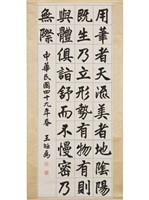 用筆者天流美者地陰陽
既生乃立形勢有物有則
與體俱詣舒而不慢密乃
無際
中華民國四十九年春 王壯為